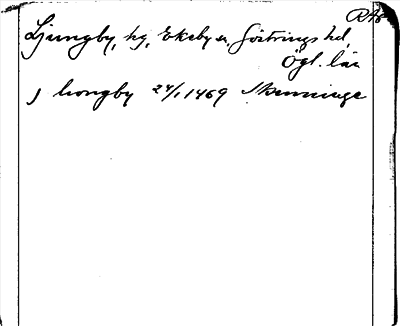 RAp
Ljungby, hg, Ekeby sn, Göstrings hd,
Ögl. län
J liongby 24/1 1469 Skenninge